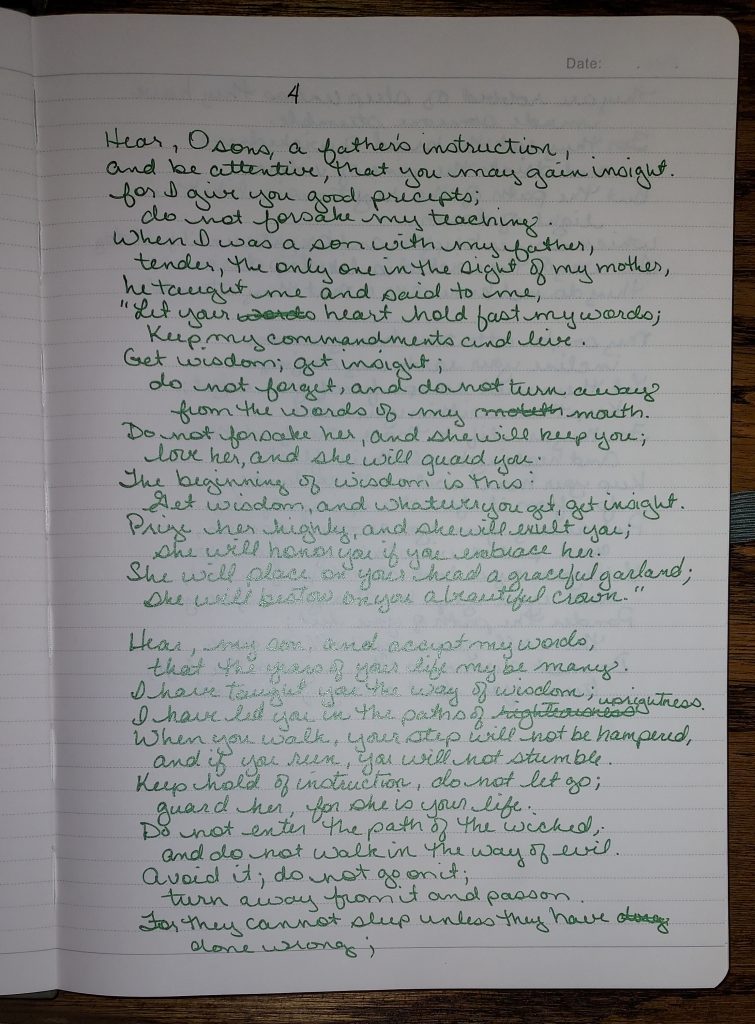 Date:
4
Hear, O sons, a father's instruction,
and be attentive, that you may gain insight.
for I give you good precepts;
do not forsake my teaching.
When I was a son with my father,
tender, the only one in the sight of my mother,
he taught me and said to me,
"Let your words heart hold fast my words;
Keep my commandments and live.
Get wisdom; get insight;
do not forget, and do not turn away
from the words of my mouth.
Do not forsake her, and she will keep you;
love her, and she will guard you.
The beginning of wisdom is this:
Get wisdom, and whatever you get, get insight.
Prize her highly, and she will exult you;
she will honor you if you embrace her.
She will place on your head a graceful garland;
she will bestow on you a beautiful crown."
Hear, my son, and accept my words,
that the years of your life my be many.
I have taught you the way of wisdom;
I have led you in the paths of righteousness uprightness.
When you walk, your step will not be hampered,
and if you run, you will not stumble.
Keep hold of instruction, do not let go;
guard her, for she is your life.
Do not enter the path of the wicked,
and do not walk in the way of evil.
Avoid it; do not go on it;
turn away from it and pass on.
For they cannot sleep unless they have
done wrong;